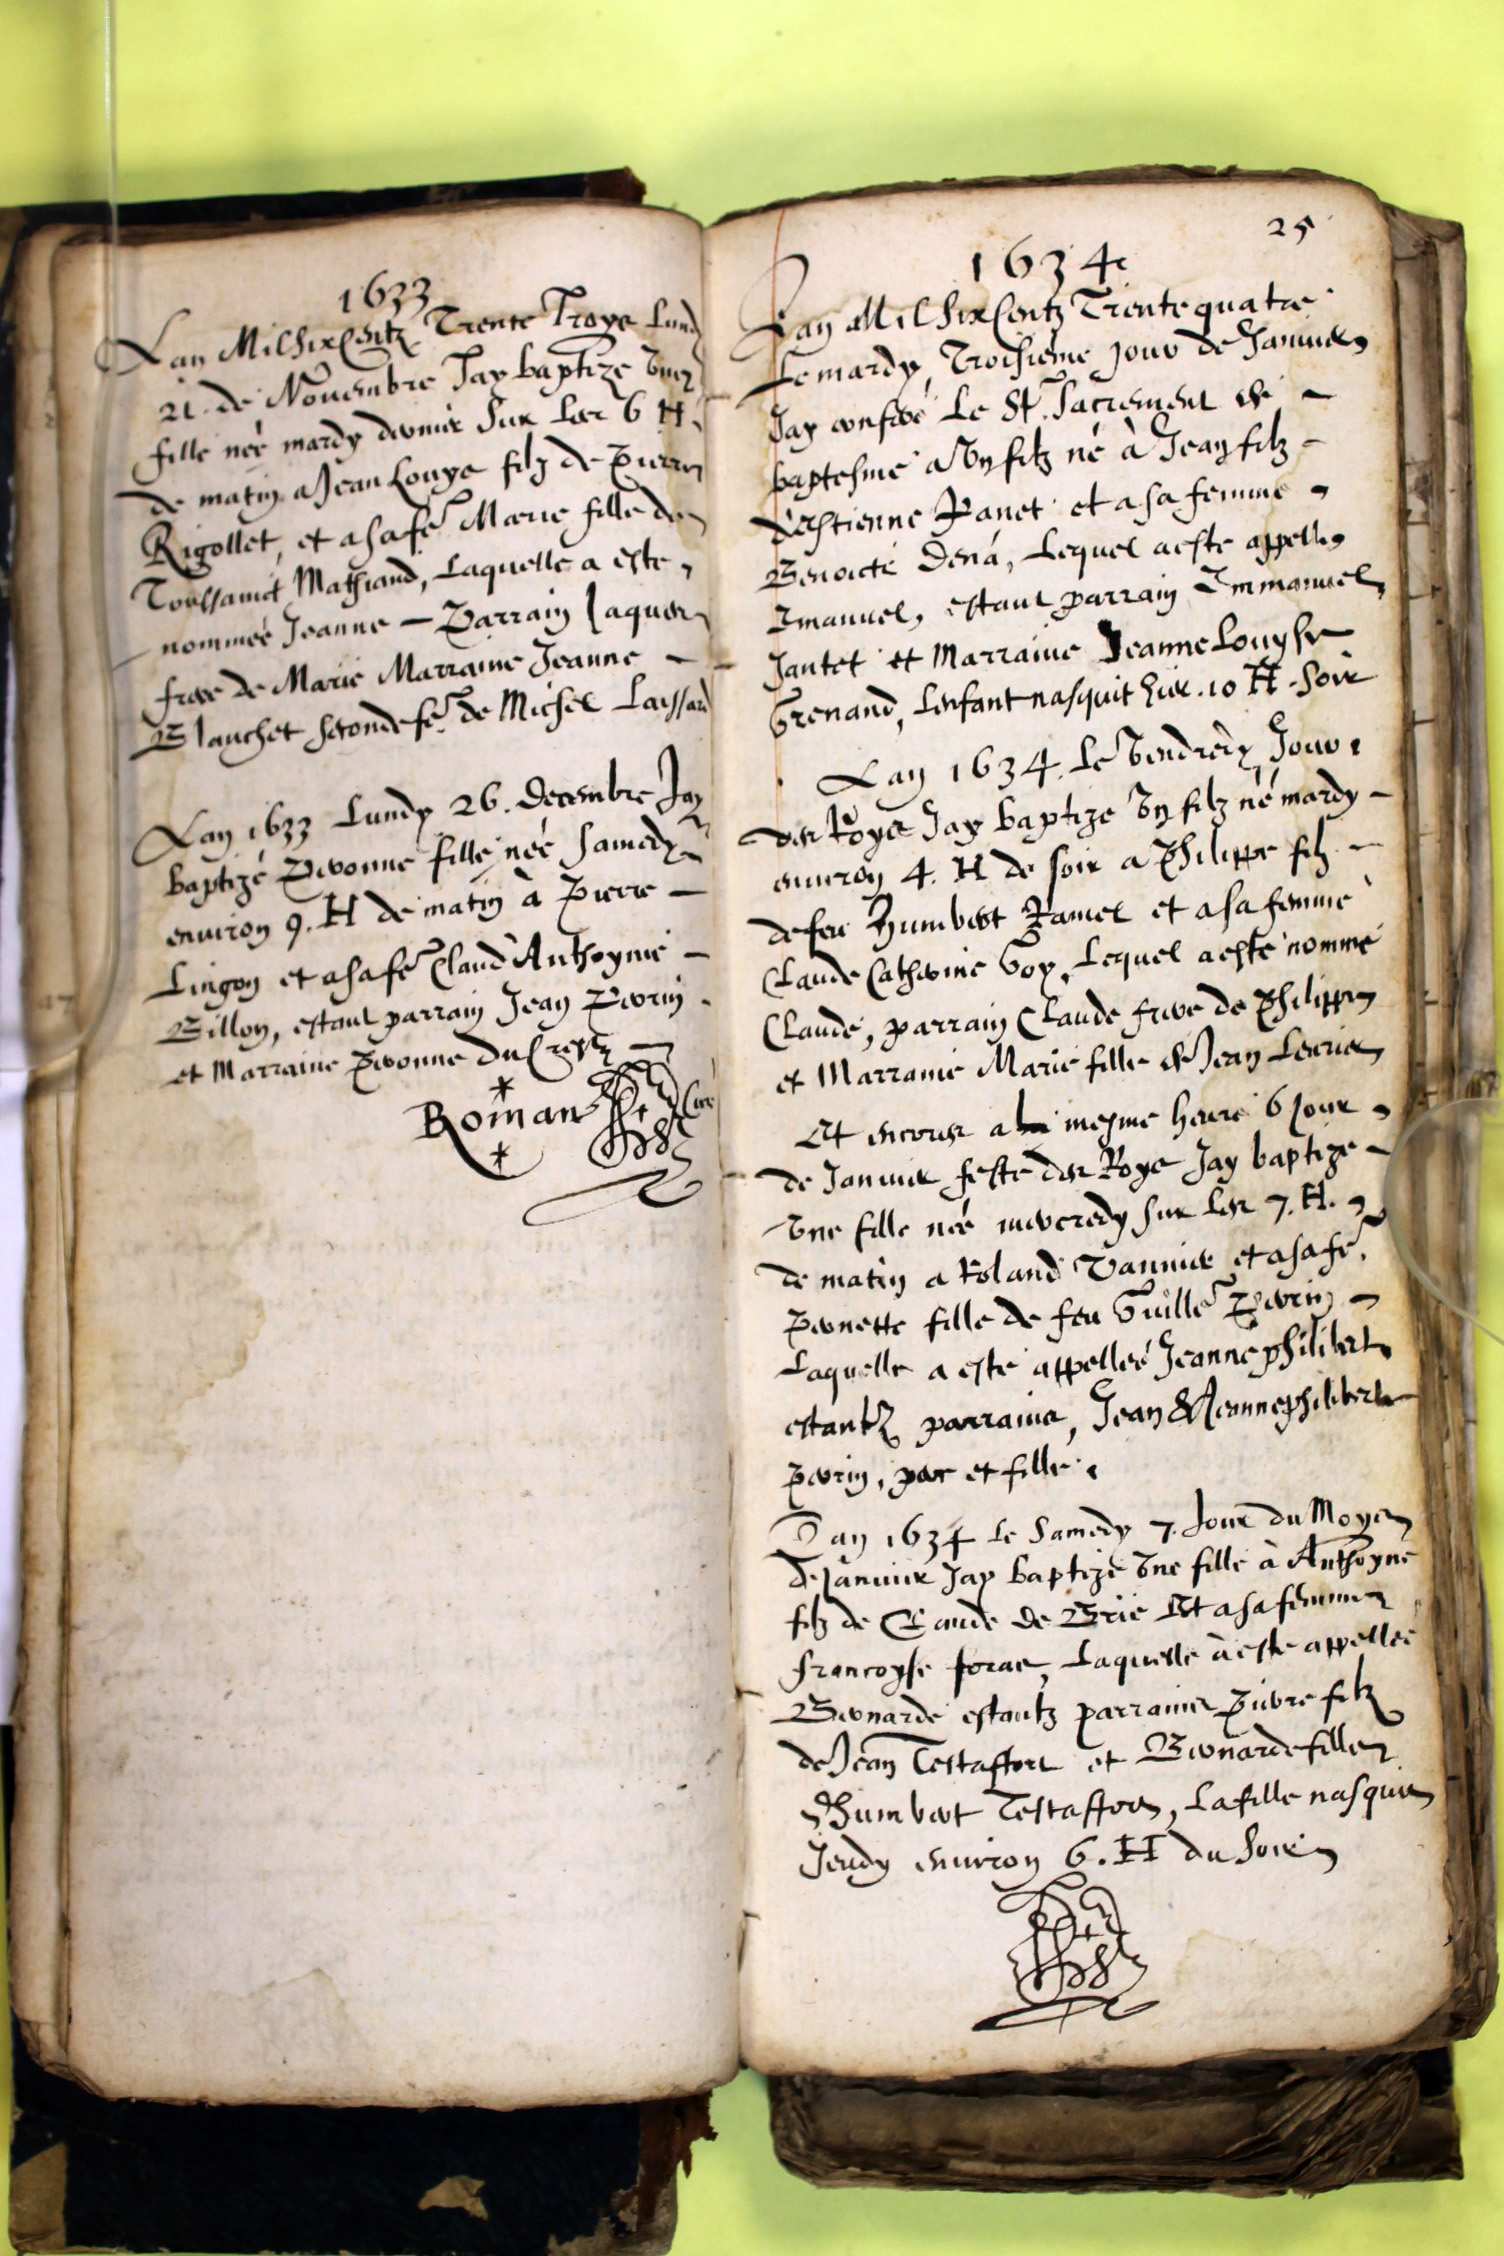 1633
Lan Mil Six Centz Trente Troys Lundy
21. de Nouembre Jay baptize Vne
fille neé mardy dernier Sur les 6 H
de matin a Jean Louys filz de Pierre
Rigollet, et a sa fe Marie fille de
Toussainct Mathiand, Laquelle a este
nommeé Jeanne - Parrain Jaques
frere de Marie Marraine Jeanne -
Blanchet seconde fe de Michel Laissard
Lan 1633 Lundy 26. decembre Jay
baptizé Pernonne fille neé Samedy
enuiron 9. H de matin à Pierre -
Lingon et a sa fe Claud Anthoynie -
Billon, estant parrain Jean Perrin
et Marraine Pernonne du Crest
Roman Curé
25
1634
Lan Mil Six Centz Trente quatre
Le mardy, Troisieme jour de Januier
Jay conferé Le St Sacrement de -
baptesme a Vn filz né à Jean filz -
d'Estienne Panet et a sa femme
Benoicte Dená, Lequel a este appelle
Emanuel, estant parrain Emmanuel
Jantet et Marraine Jeanne Louyse
Grenand, Lenfant nasquit hier. 10 H. Soir
Lan 1634. Le Vendredy Jour
des Roys Jay baptize Vn filz né mardy -
enuiron 4. H de soir a Philippe filz -
de feu Humbert Ramel et a sa femme
Claude Catherine Goy, Lequel a este nommé
Claude, parrain Claude frere de Philippe
et Marraine Marie fille de Jean
Et encores a mesme heure 6 jour
de Januier feste des Roys Jay baptize -
Vne fille neé mercredy sur les 7. H.
de matin a Roland Vannier et a sa fe
Pernette fille de feu Guille Perrin -
Laquelle a este appelleé Jeanne philiberte
estantz parrains, Jean & Jeanne philiberte
Perrin, pere et fille.
Lan 1634 Le Samedy 7. Jour du Moys
de Januier Jay baptizé Vne fille à Anthoyne
filz de Claude de Brie Et a sa femme
francoyse foras, Laquelle à este appelleé
Bernarde estantz parrains Pierre filz
de Jean Testaffort et Bernarde fille
Humbert Testaffort, La fille nasquit
Jeudy enuiron 6. H du soir